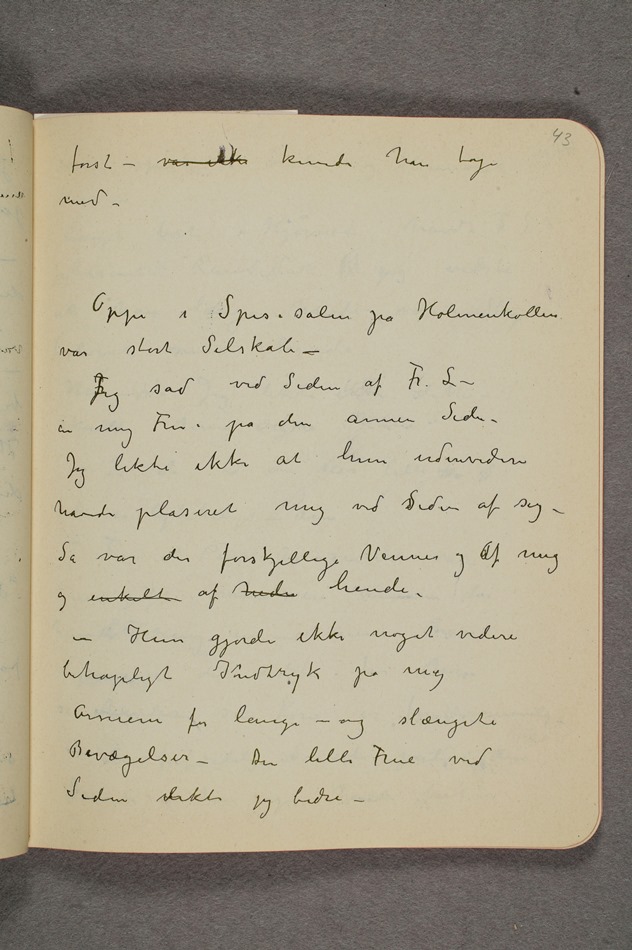 43
først – var ikke kunde han tage
med –
Oppe i Spisesalen på Holmenkollen
var stort Selskab –
Jeg sad ved Siden af Fr. L –
en ung Frue på den annen Side –
Jeg likte ikke at hun udenvidere
havde plaseret mig ved Siden af sig –
Så var der forskjellige Venner og af mig
og enkelte af hende.
– Hun gjorde ikke noget videre
behageligt Indtryk på mig
Armene for lange – og slængete
Bevægelser – Den lille Frue ved
Siden likte jeg bedre –